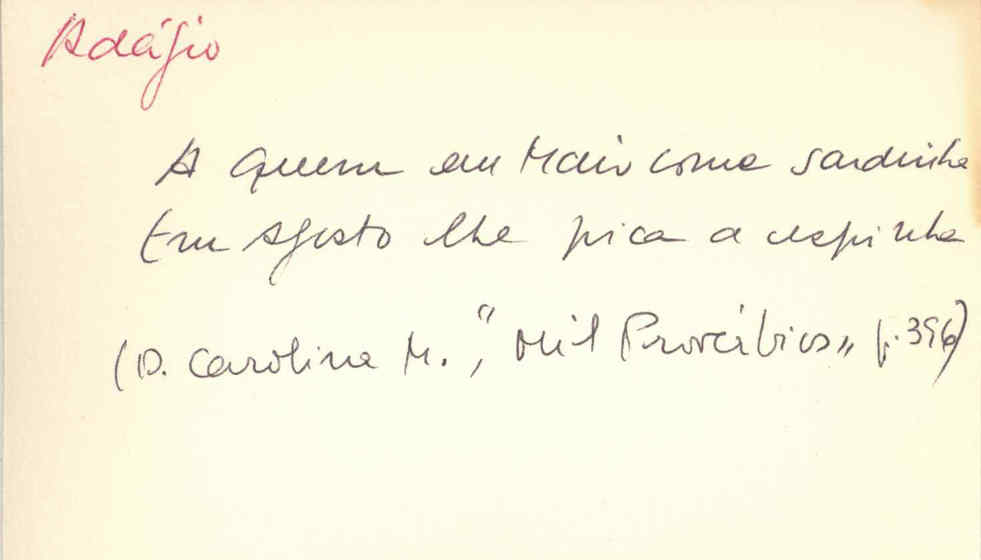 Adágio
A quem em Maio come sardinha
Em Agosto lhe pica a espinha
(D. Carolina M., "Mil Provérbios" p. 396)